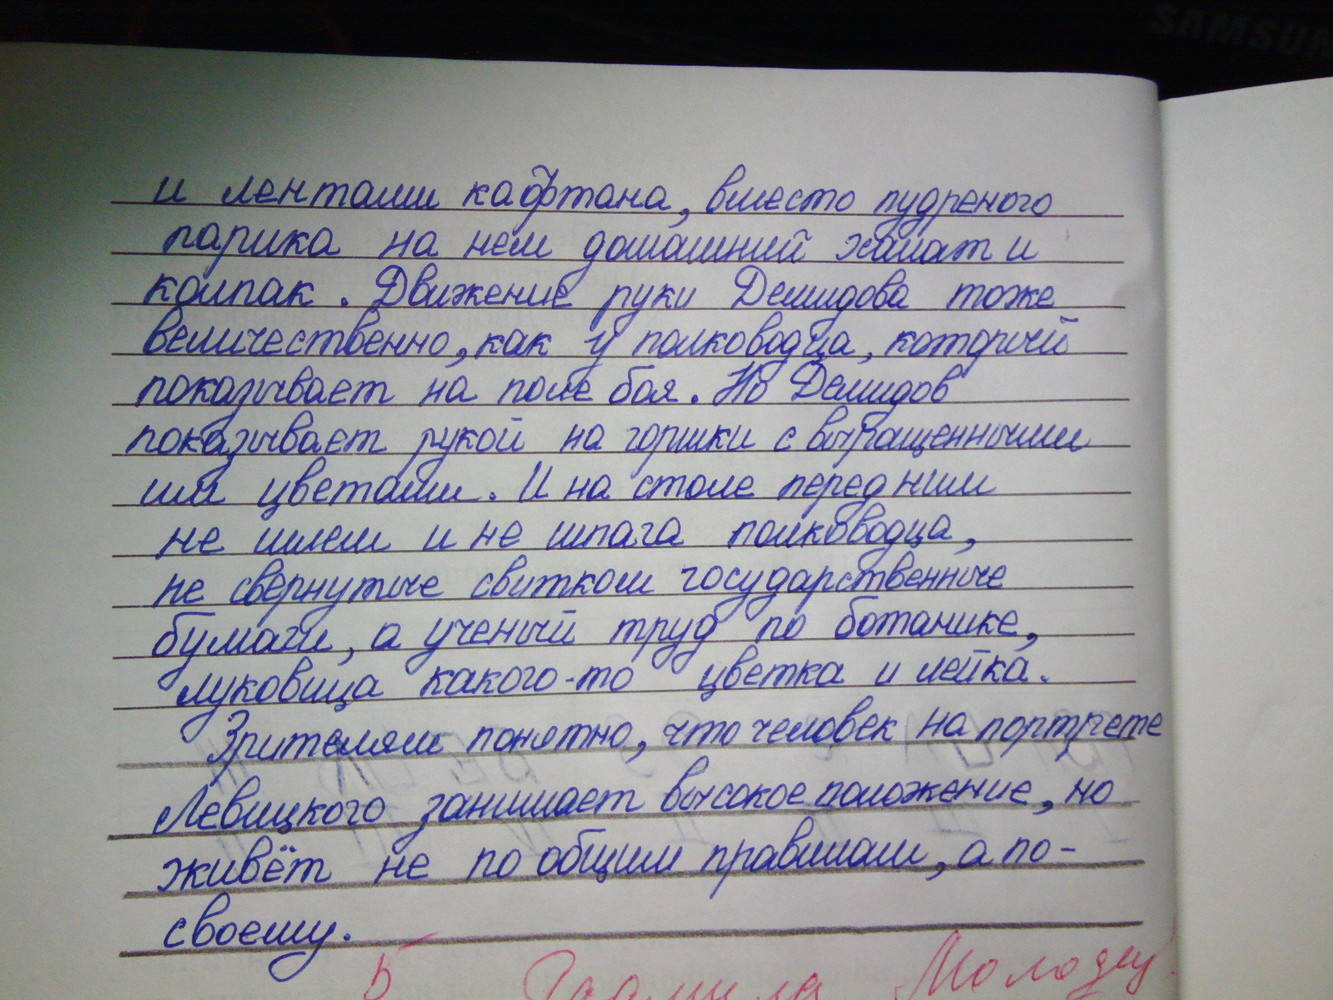 SAMSUN
и лентами кафтана, вместо пудреного
парика на нем домашний халат и
колпак. Движение руки Демидова тоже
величественно, как у полководца, который
показывает на поле боя. Но Демидов
показывает рукой на горшки с выращенными
им цветами. И на столе перед ним
не шлем и не шпага полководца,
не свернутые свитком государственные
бумаги, а ученый труд по ботанике,
луковица какого-то цветка и лейка.
Зрителям понятно, что человек на портрете
Левицкого занимает высокое положение, но
живёт не по общим правилам, а по-
своему.
5 Молодец